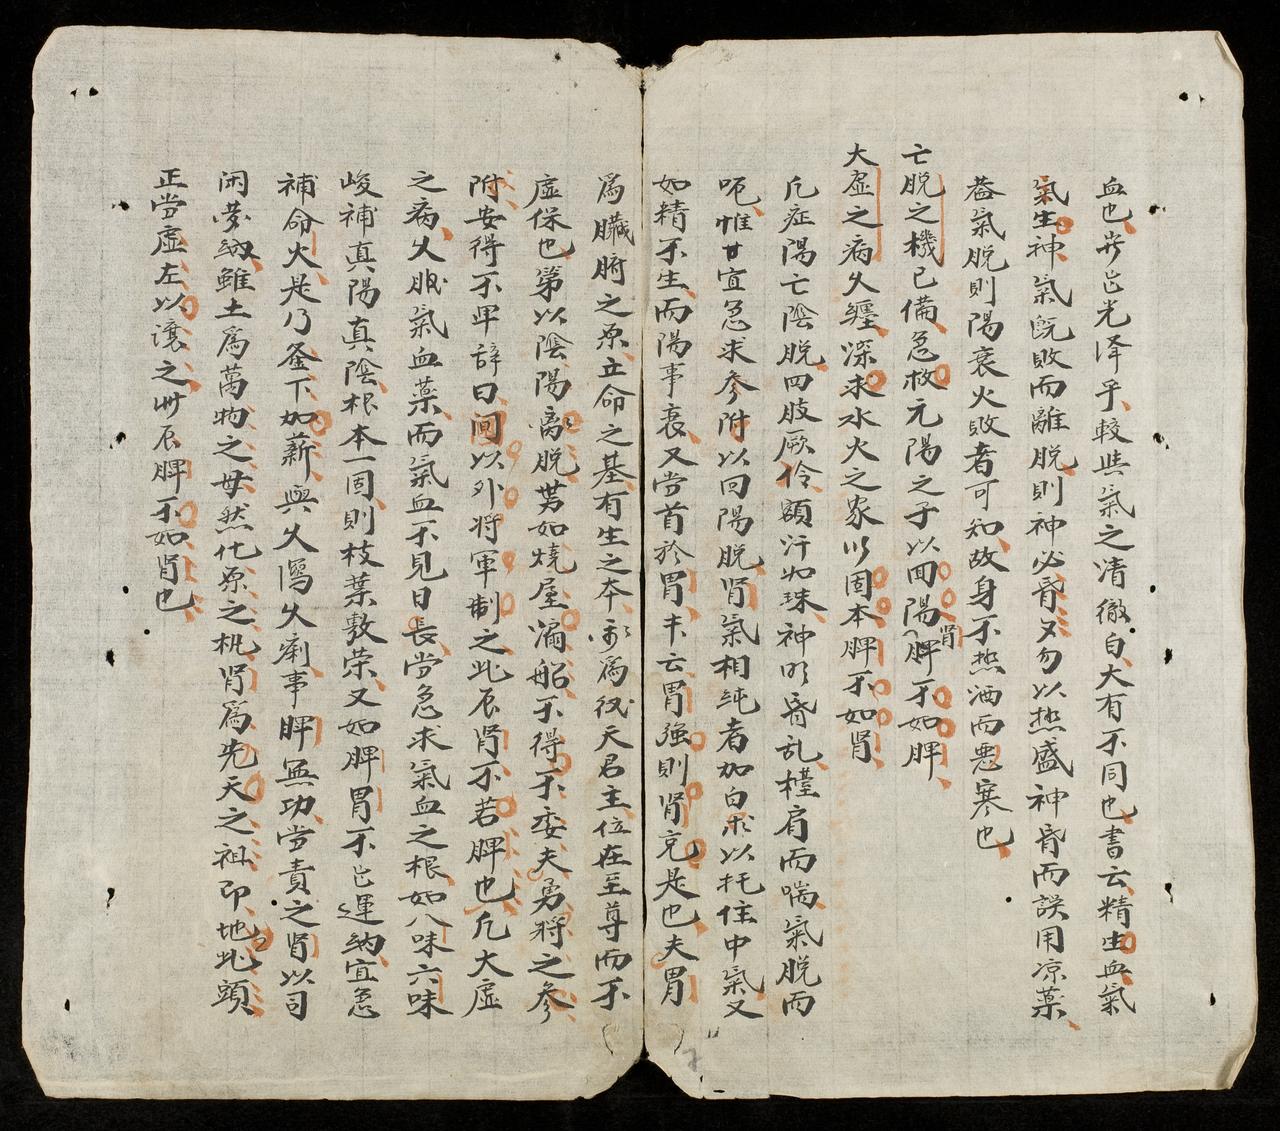 血也岂光泽乎較些氣之清徹自大有不同也書云精生血氣
氣生神氣既敗而離脱則神必昏又勿以热盛神昏而誤用凉藥
蓋氣脱則陽衰火敗者可知故身不热洒而悪寒也
亡脱之機已備急救元陽之子以回陽脾不如脾
腎
大虛之病久纏深求水火之家以固本脾不如腎
凡症陽亡陰脱四肢厥伶額汗如珠神明昏乱檯肩而喘氣脱而
呃惟甘宜急求參附以回陽脱腎氣相純者加白朮以托住中氣又
如精不生而陽事衰又當首於胃丰云胃強則腎充是也夫胃
爲臟腑之原立命之基有生之本爲天君主位在至尊而不
虛保也第以陰陽离脱势如燒屋漏船不得不委夫勇將之參
附安得不卑辞曰间以外将軍制之此辰腎不若脾也凡大虛
之病久服氣血藥而氣血不見日長當急求氣血之根如八味六味
峻補真陽真陰根本一固則枝葉敷荣又如脾胃不运納宜急
補命火是乃釜下加薪與久瀉久痢事脾無功當責之腎以司
闭蛰蔵雖土爲萬物之母然化原之机腎爲先天之祖即地此頭
正當虛左以讓之此辰脾不如腎也